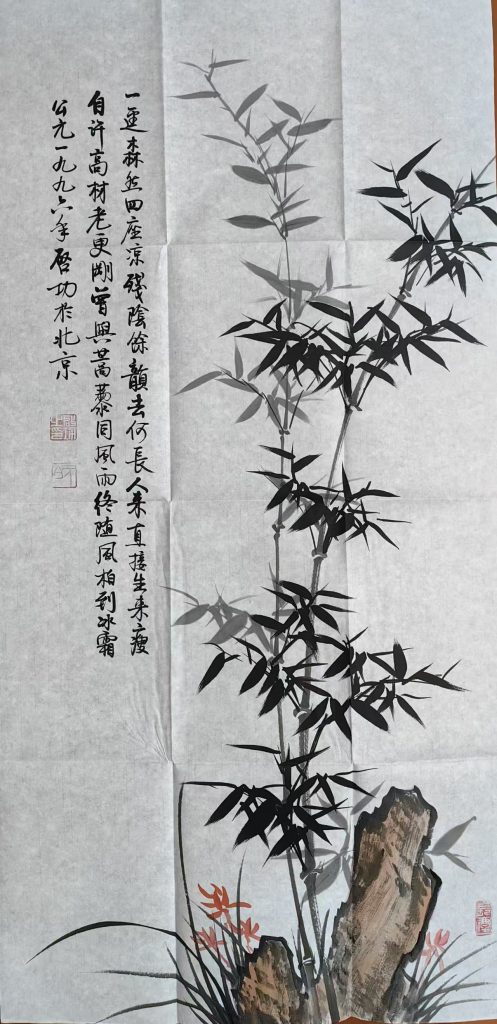 一迳森然四座凉残陰餘韻去何長人来直接生来瘦
自许高材老更刚曾與蒿藜同風雨终随風柏到冰霜
公元一九九六年啓功於北京